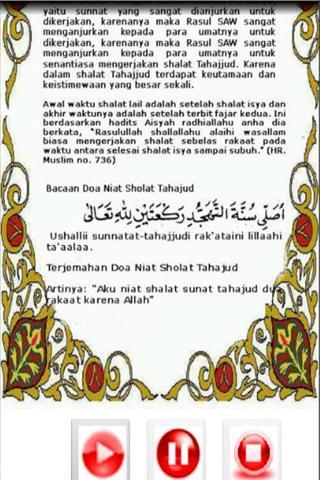 yaitu sunnat yang sangat dianjurkan untuk
dikerjakan, karenanya maka Rasul SAW sangat
menganjurkan kepada para umatnya untuk
dikerjakan, karenanya maka Rasul SAW sangat
menganjurkan kepada para umatnya untuk
senantiasa mengerjakan shalat Tahajjud. Karena
dalam shalat Tahajjud terdapat keutamaan dan
keistimewaan yang besar sekali.
Awal waktu shalat lail adalah setelah shalat isya dan
akhir waktunya adalah setelah terbit fajar kedua. Ini
berdasarkan hadits Aisyah radhiallahu anha dia
berkata, “Rasulullah shallallahu alaihi wasallam
biasa mengerjakan shalat sebelas rakaat pada
waktu antara selesai shalat isya sampai subuh.” (HR.
Muslim no. 736)
Bacaan Doa Niat Sholat Tahajud
اُصَلِّى سُنَّةَ التَّهَجُّدِ رَكْعَتَيْنِ لِلّٰهِ تَعَالَى
Ushallii sunnatat-tahajjudi rak'ataini lillaahi
ta'aalaa.
Terjemahan Doa Niat Sholat Tahajud
Artinya: "Aku niat shalat sunat tahajud du
rakaat karena Allah"